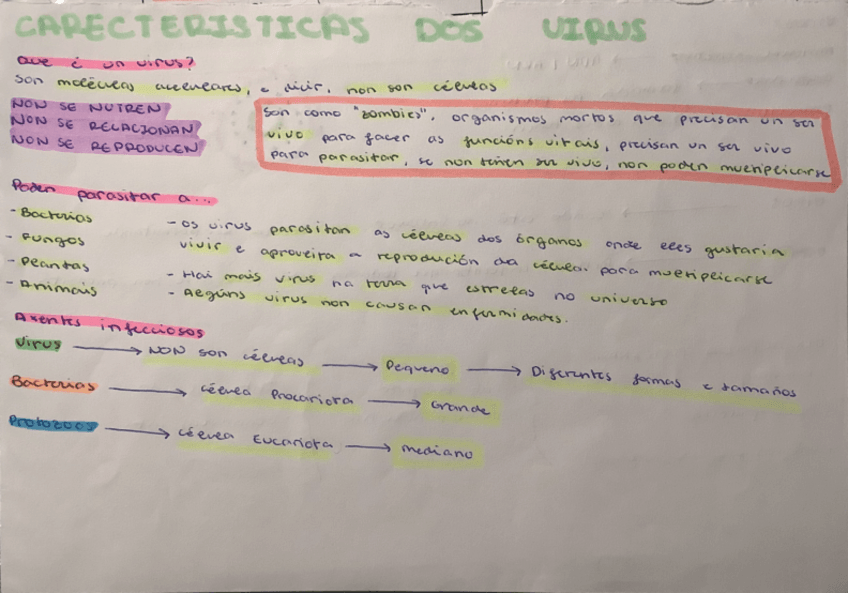 CARECTERISTICAS DOS VIRUS
Que é un virus?
Son moléculas acelulares, e dicir, non son células
NON SE NUTREN
NON SE RELACIONAN
NON SE REPRODUCEN
Son como "zombies", organismos mortos que precisan un ser
vivo para facer as funcións vitais, precisan un ser vivo
para parasitar, se non teñen ser vivo, non poden multiplicarse
Poden parasitar a...
- Bacterias
- Fungos
- Plantas
- Animais
- Os virus parasitan as células dos órganos onde eles gustaria
vivir e aproveita a reprodución da célula para multiplicarse
- Hai mais virus na terra que estrelas no universo
- Algúns virus non causan enfermidades.
Axentes infecciosos
Virus → NON son células → Pequeno → Diferentes formas e tamaños
Bacterias → célula Procariota → Grande
Protozoos → célula Eucariota → mediano